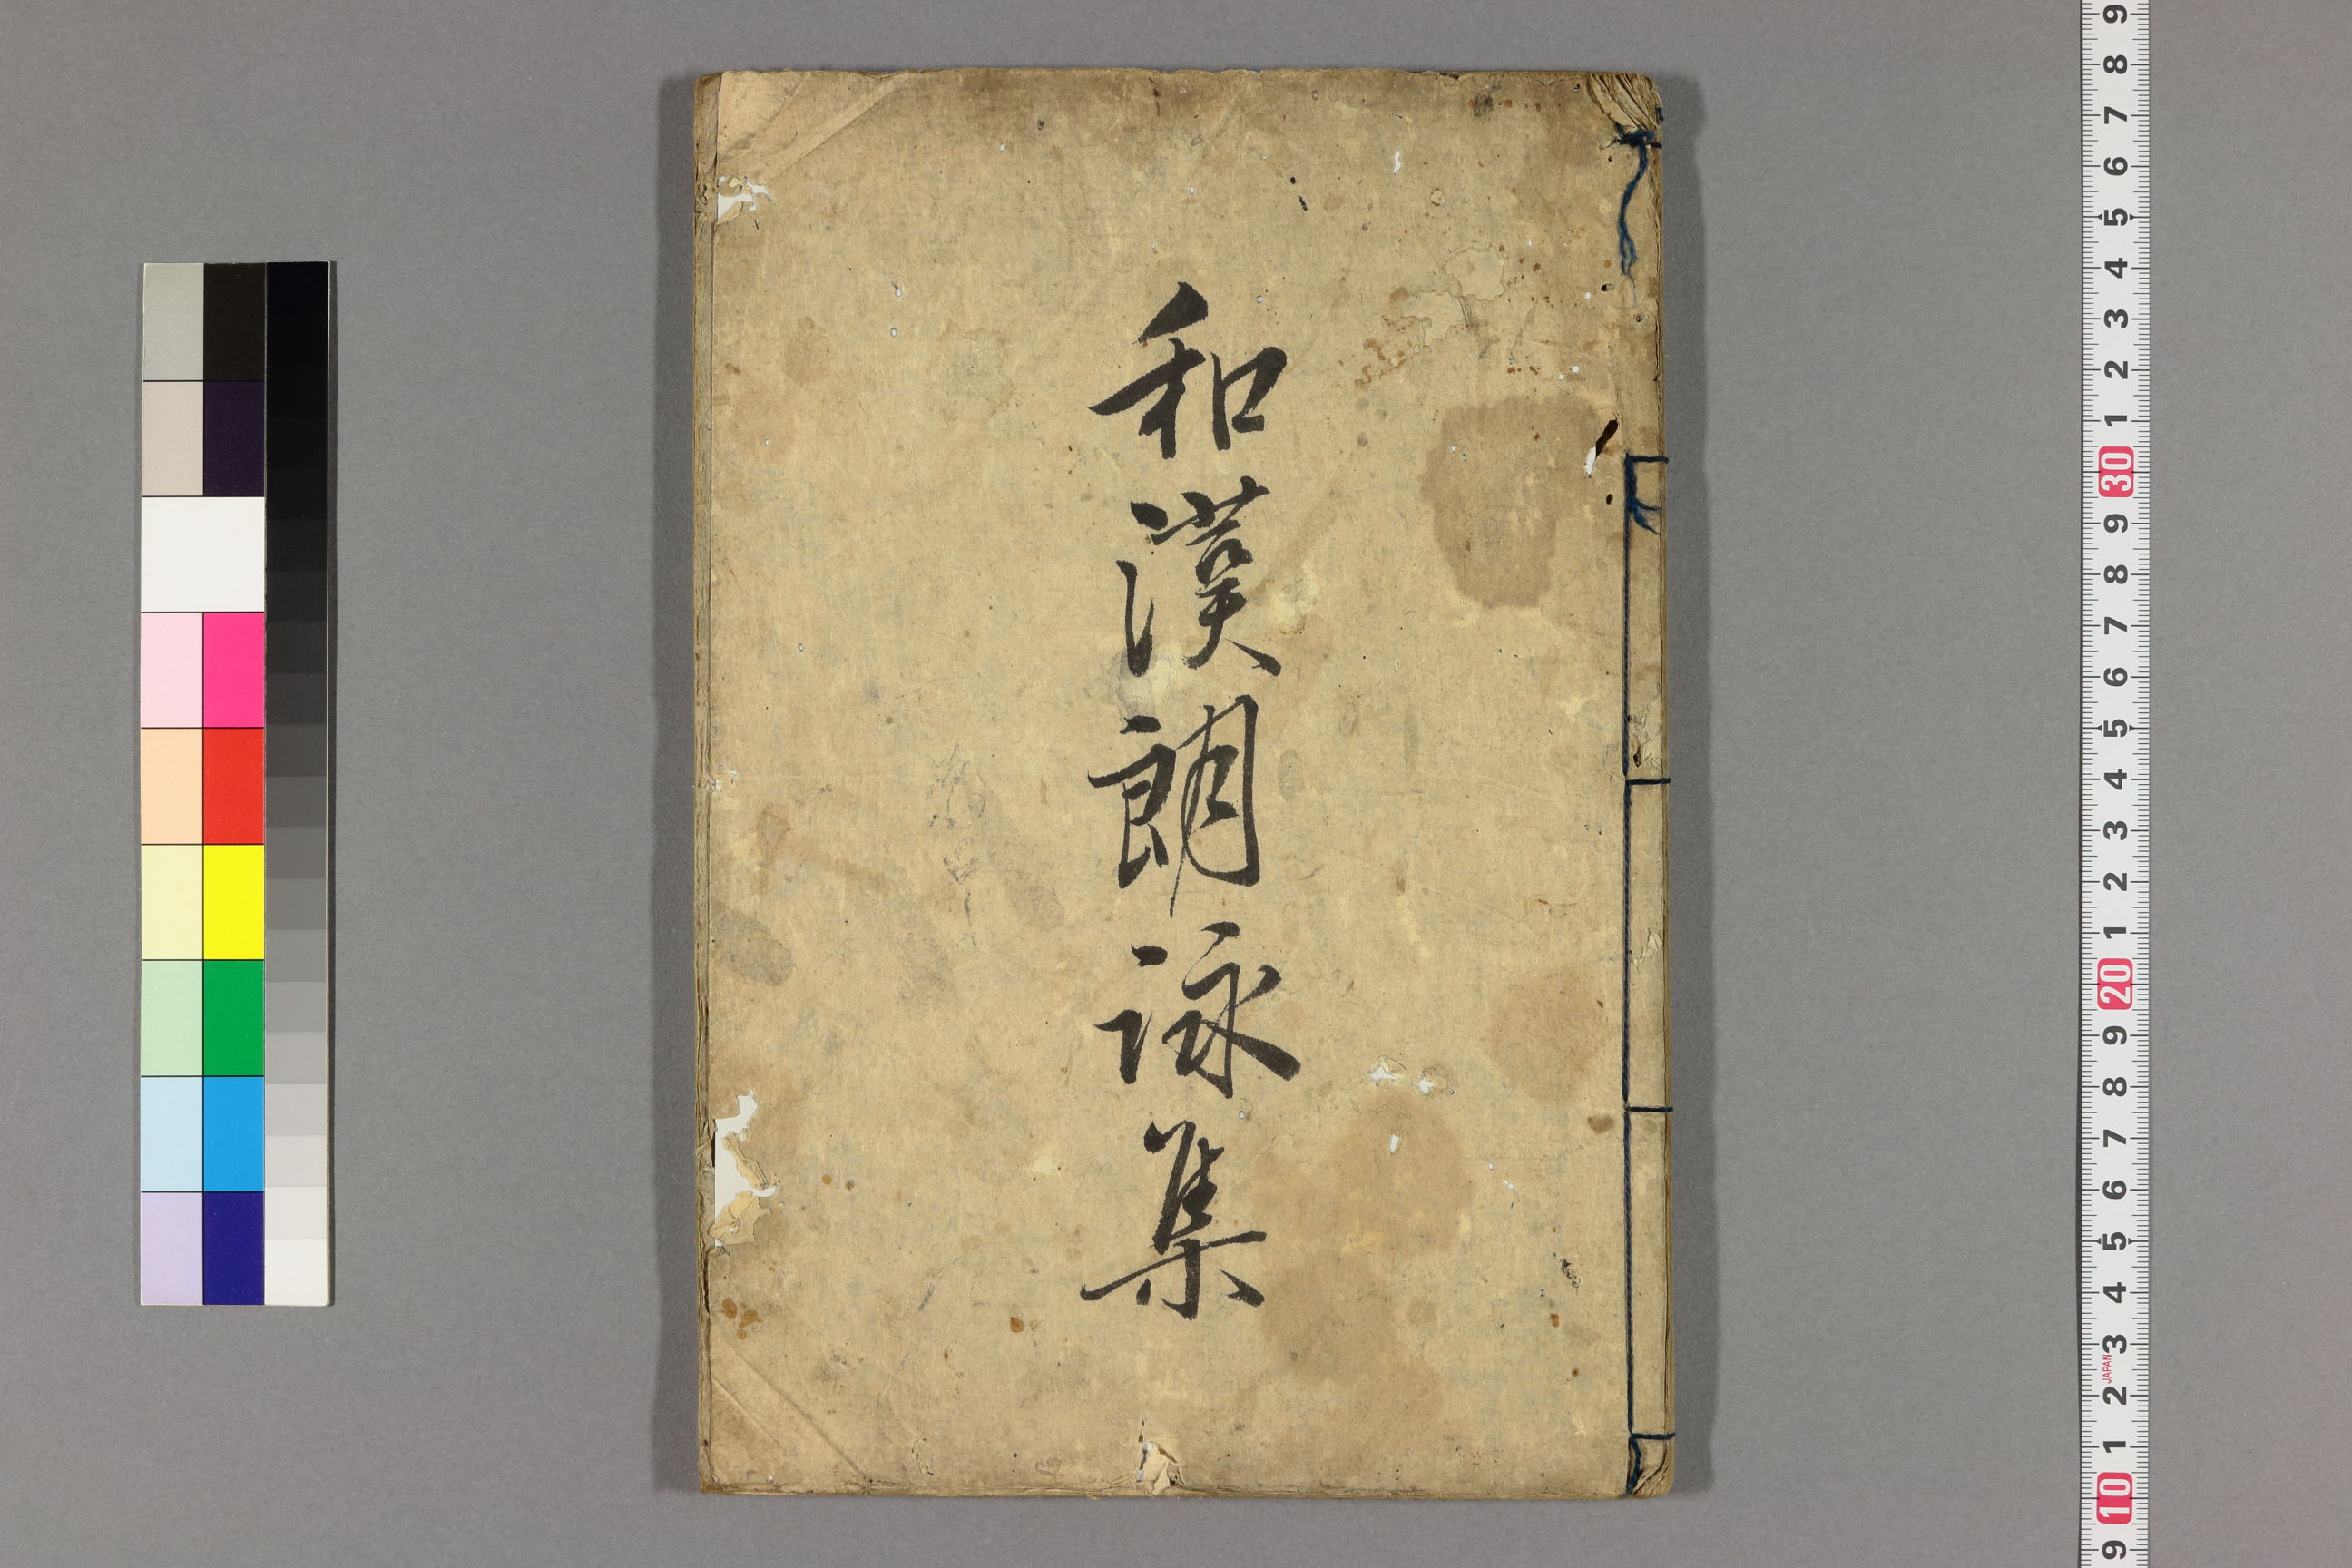 和漢朗詠集
9
8
7
6
5
4
3
2
1
30
9
8
7
6
5
4
3
2
1
20
9
8
7
6
5
4
3
JAPAN
2
1
10
9